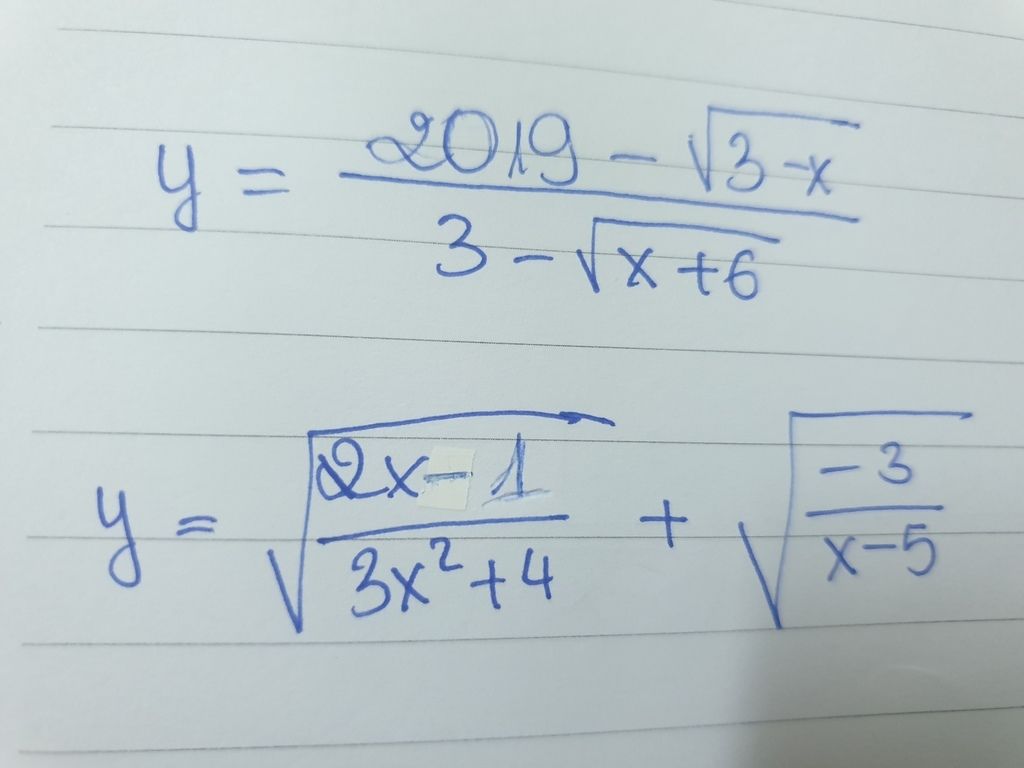 y = \frac{2019 - \sqrt{3-x}}{3 - \sqrt{x+6}}
y = \sqrt{\frac{2x-1}{3x^2+4}} + \sqrt{\frac{-3}{x-5}}